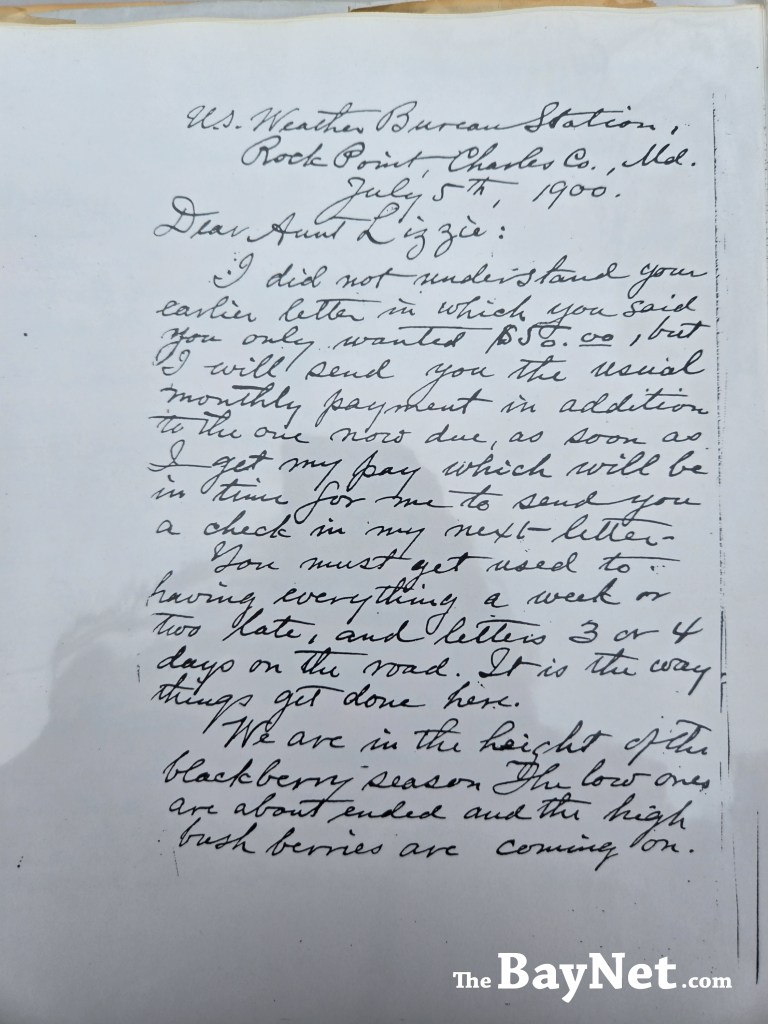 U.S. Weather Bureau Station,
Rock Point, Charles Co., Md.
July 5th, 1900.
Dear Aunt Lizzie:
I did not understand your
earlier letter in which you said
you only wanted $50.00, but
I will send you the usual
monthly payment in addition
to the one now due, as soon as
I get my pay which will be
in time for me to send you
a check in my next letter.
You must get used to
having everything a week or
two late, and letters 3 or 4
days on the road. It is the way
things get done here.
We are in the height of the
blackberry season The low ones
are about ended and the high
bush berries are coming on.
The BayNet.com